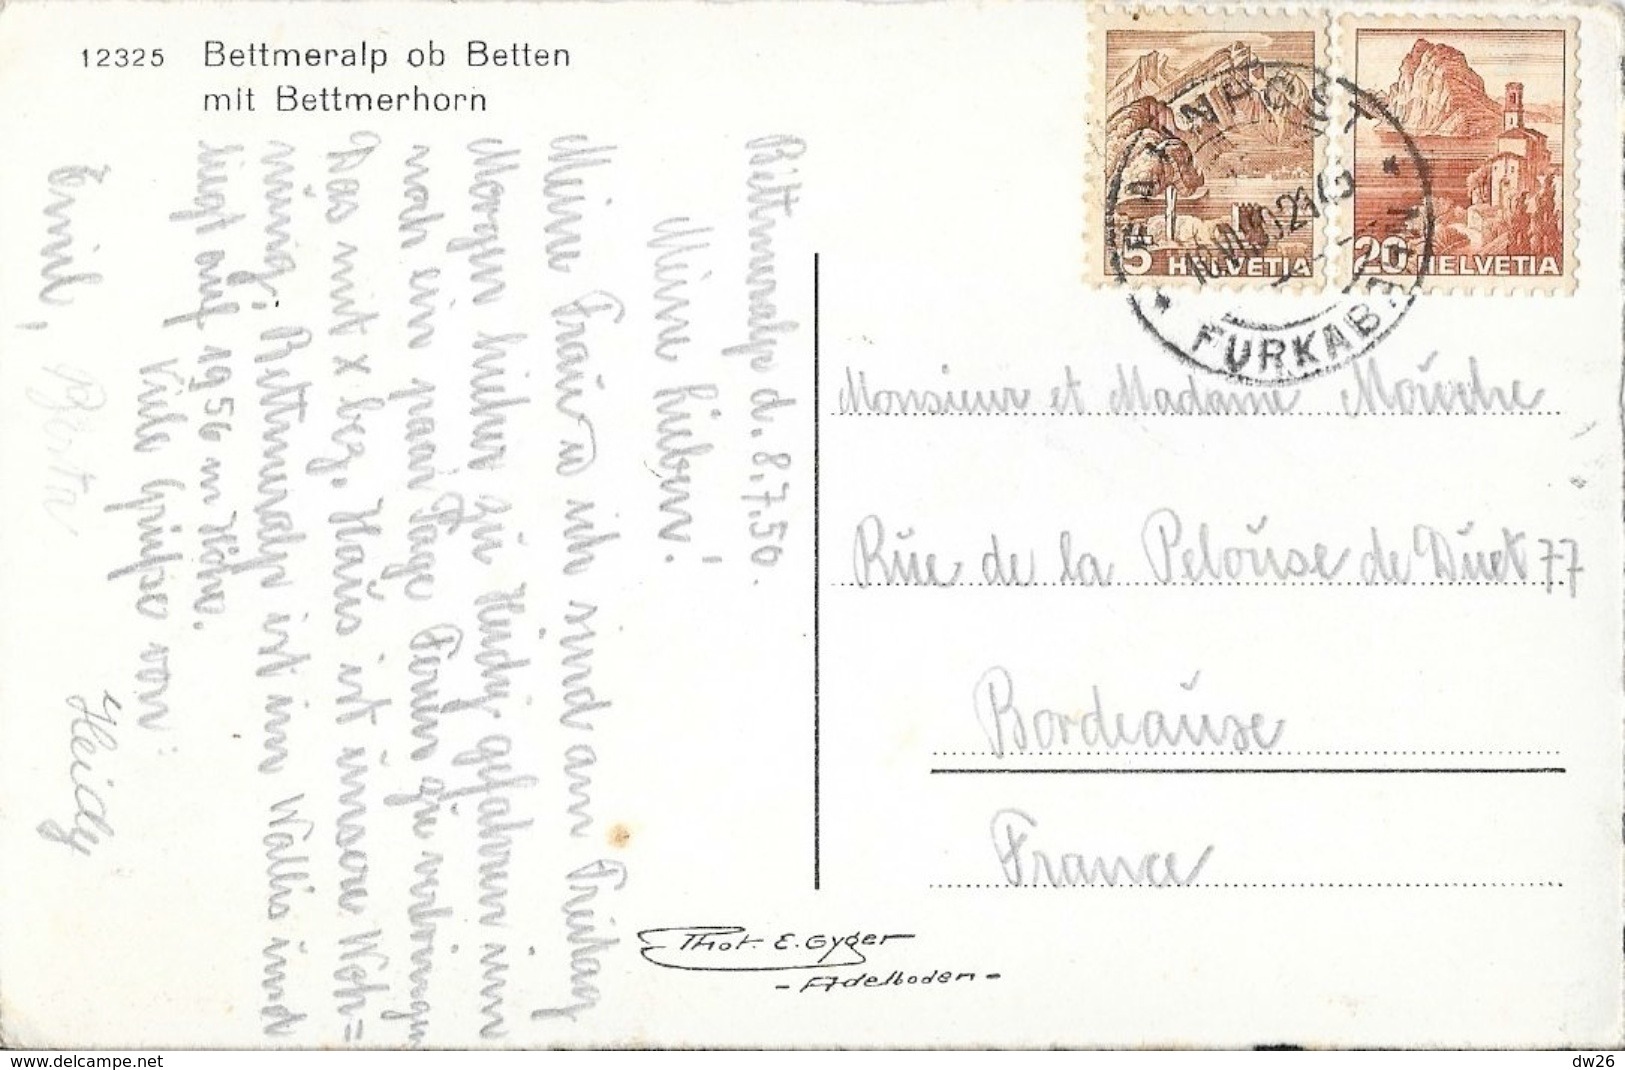 12325 Bettmeralp ob Betten
mit Bettmerhorn
Bettmeralp d. 8.7.50.
Meine Lieben!
Meine Frau u ich sind am Freitag
Morgen hieher zu Heidy gefahren um
noch ein paar Tage Ferien zu verbringen
Das mit x bez. Haus ist unsere Woh=
nung. Bettmeralp ist im Wallis und
liegt auf 1956 m Höhe.
Viele Grüsse von
Emil, Berta Heidy
5 HELVETIA
20 HELVETIA
BAHNPOST
FURKABAHN
Monsieur et Madame Mouche
Rue de la Pelouse de Duet 77
Bordeause
France
Phot. E. Gyger
- Adelboden -
www.delcampe.net
dw26